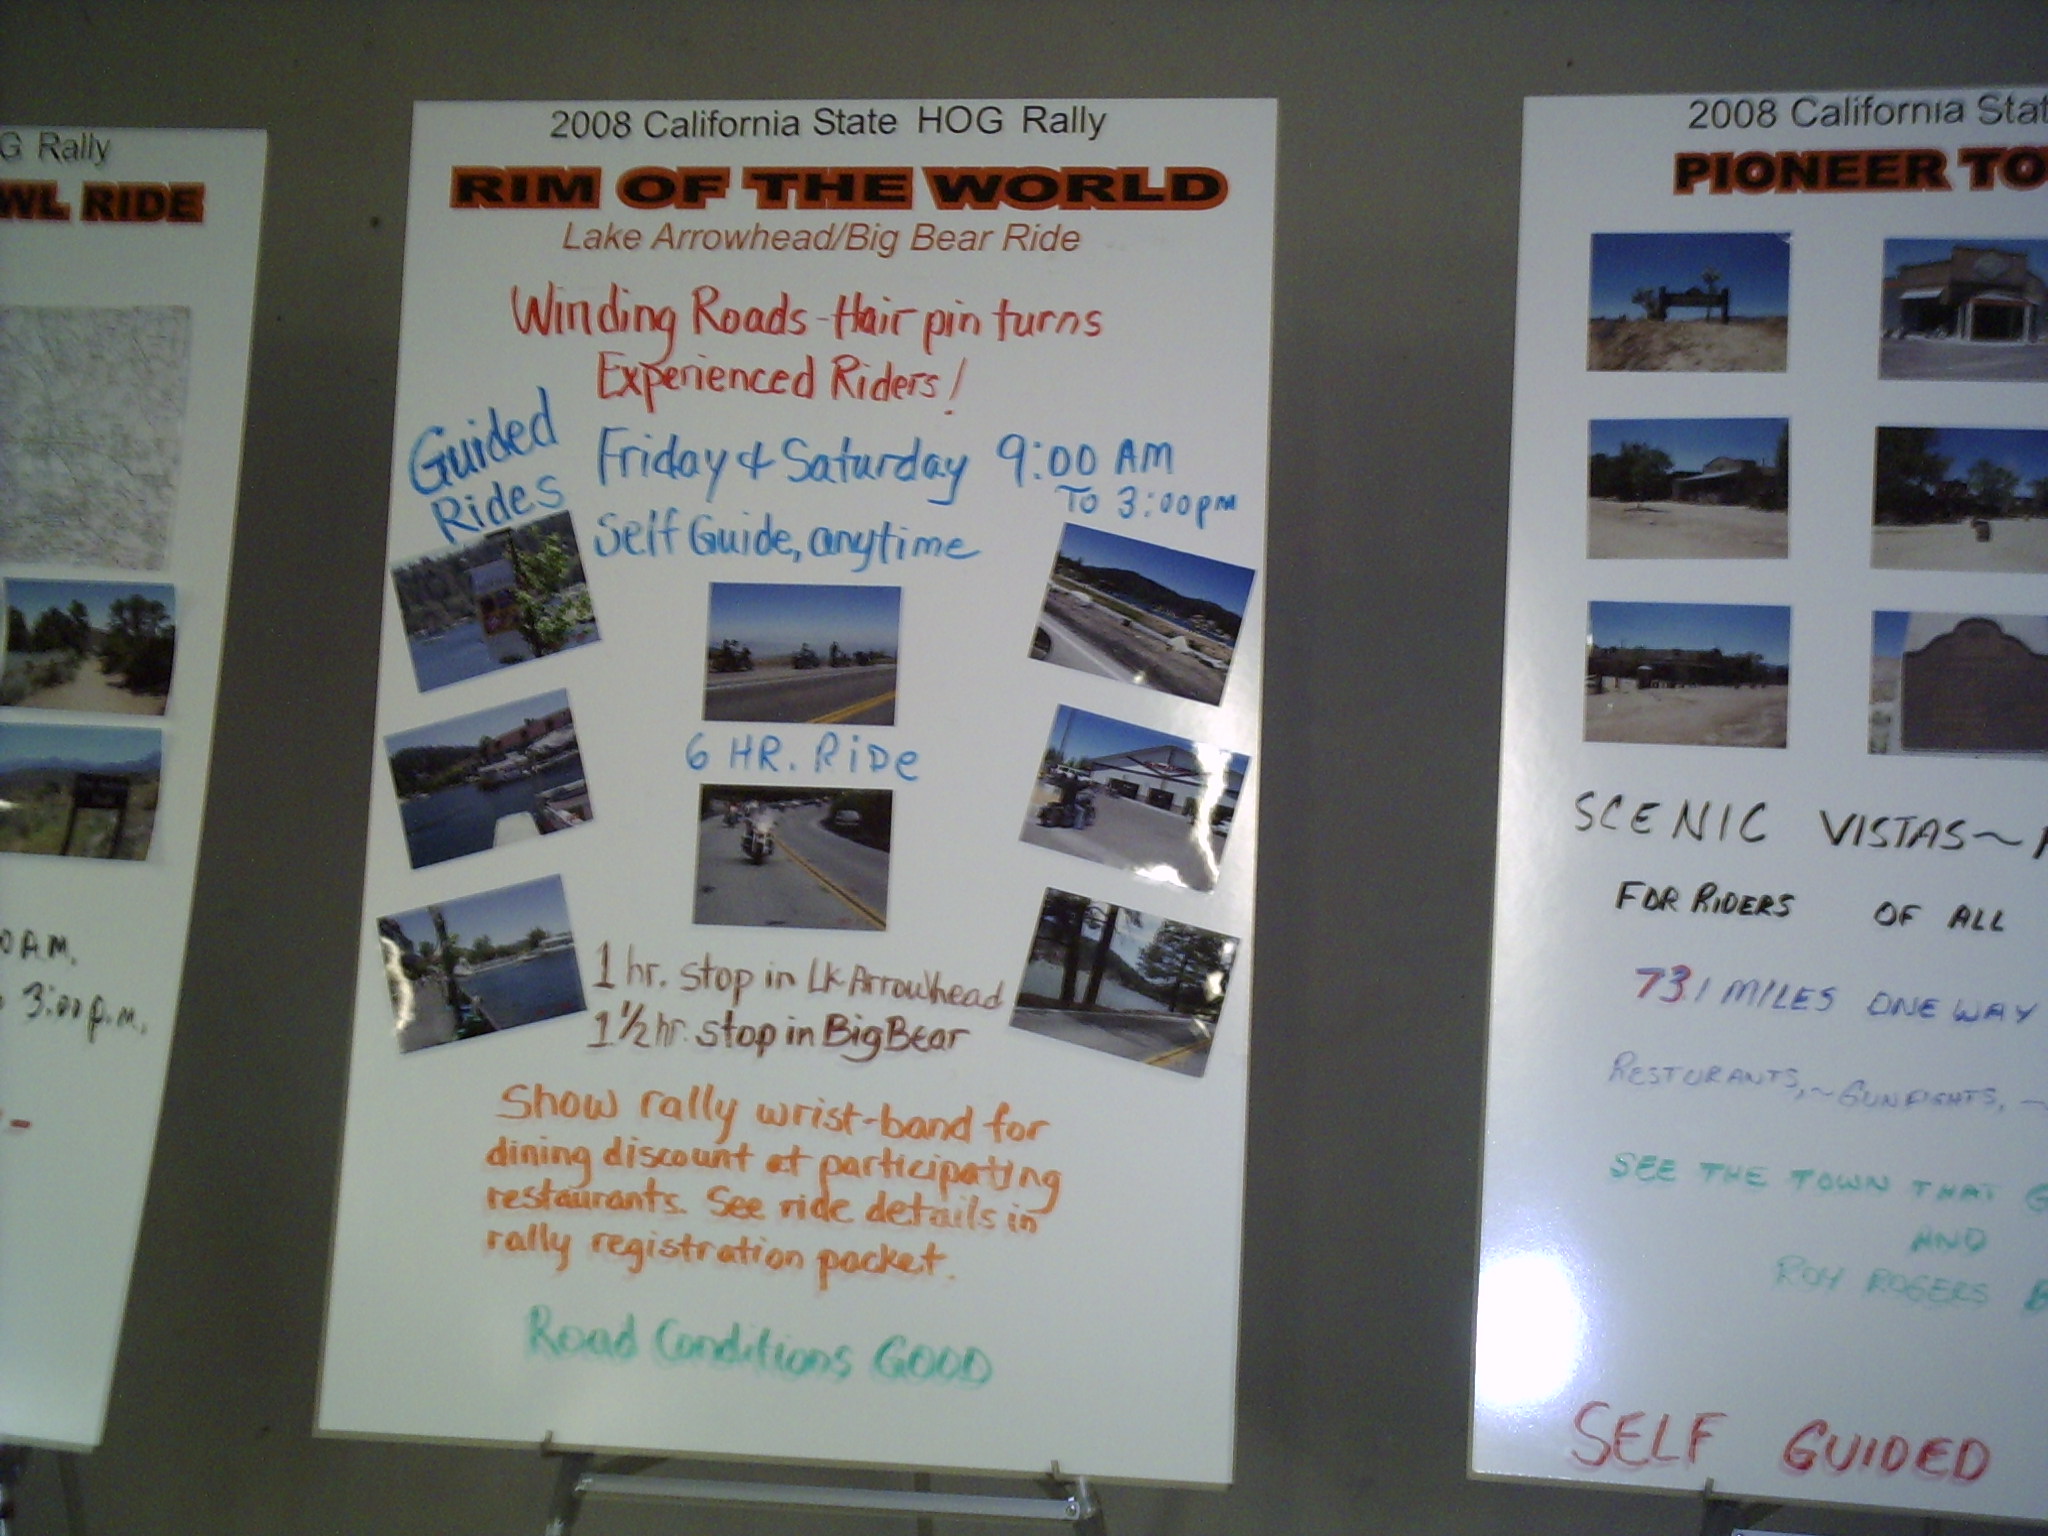 G Rally
WL RIDE
0 A.M.
3:00 p.m.
2008 California State HOG Rally
RIM OF THE WORLD
Lake Arrowhead/Big Bear Ride
Winding Roads - Hair pin turns
Experienced Riders!
Guided
Rides
Friday & Saturday 9:00 AM
TO 3:00pm
Self Guide, anytime
6 HR. RiDe
1 hr. stop in Lk Arrowhead
1 1/2 hr. stop in Big Bear
Show rally wrist-band for
dining discount at participating
restaurants. See ride details in
rally registration packet.
Road Conditions GOOD
2008 California Stat
PIONEER TO
SCENIC VISTAS ~
FOR RIDERS OF ALL
73.1 MILES ONE WAY
RESTURANTS, ~ GUNFIGHTS, ~
SEE THE TOWN THAT G
AND
ROY ROGERS B
SELF GUIDED